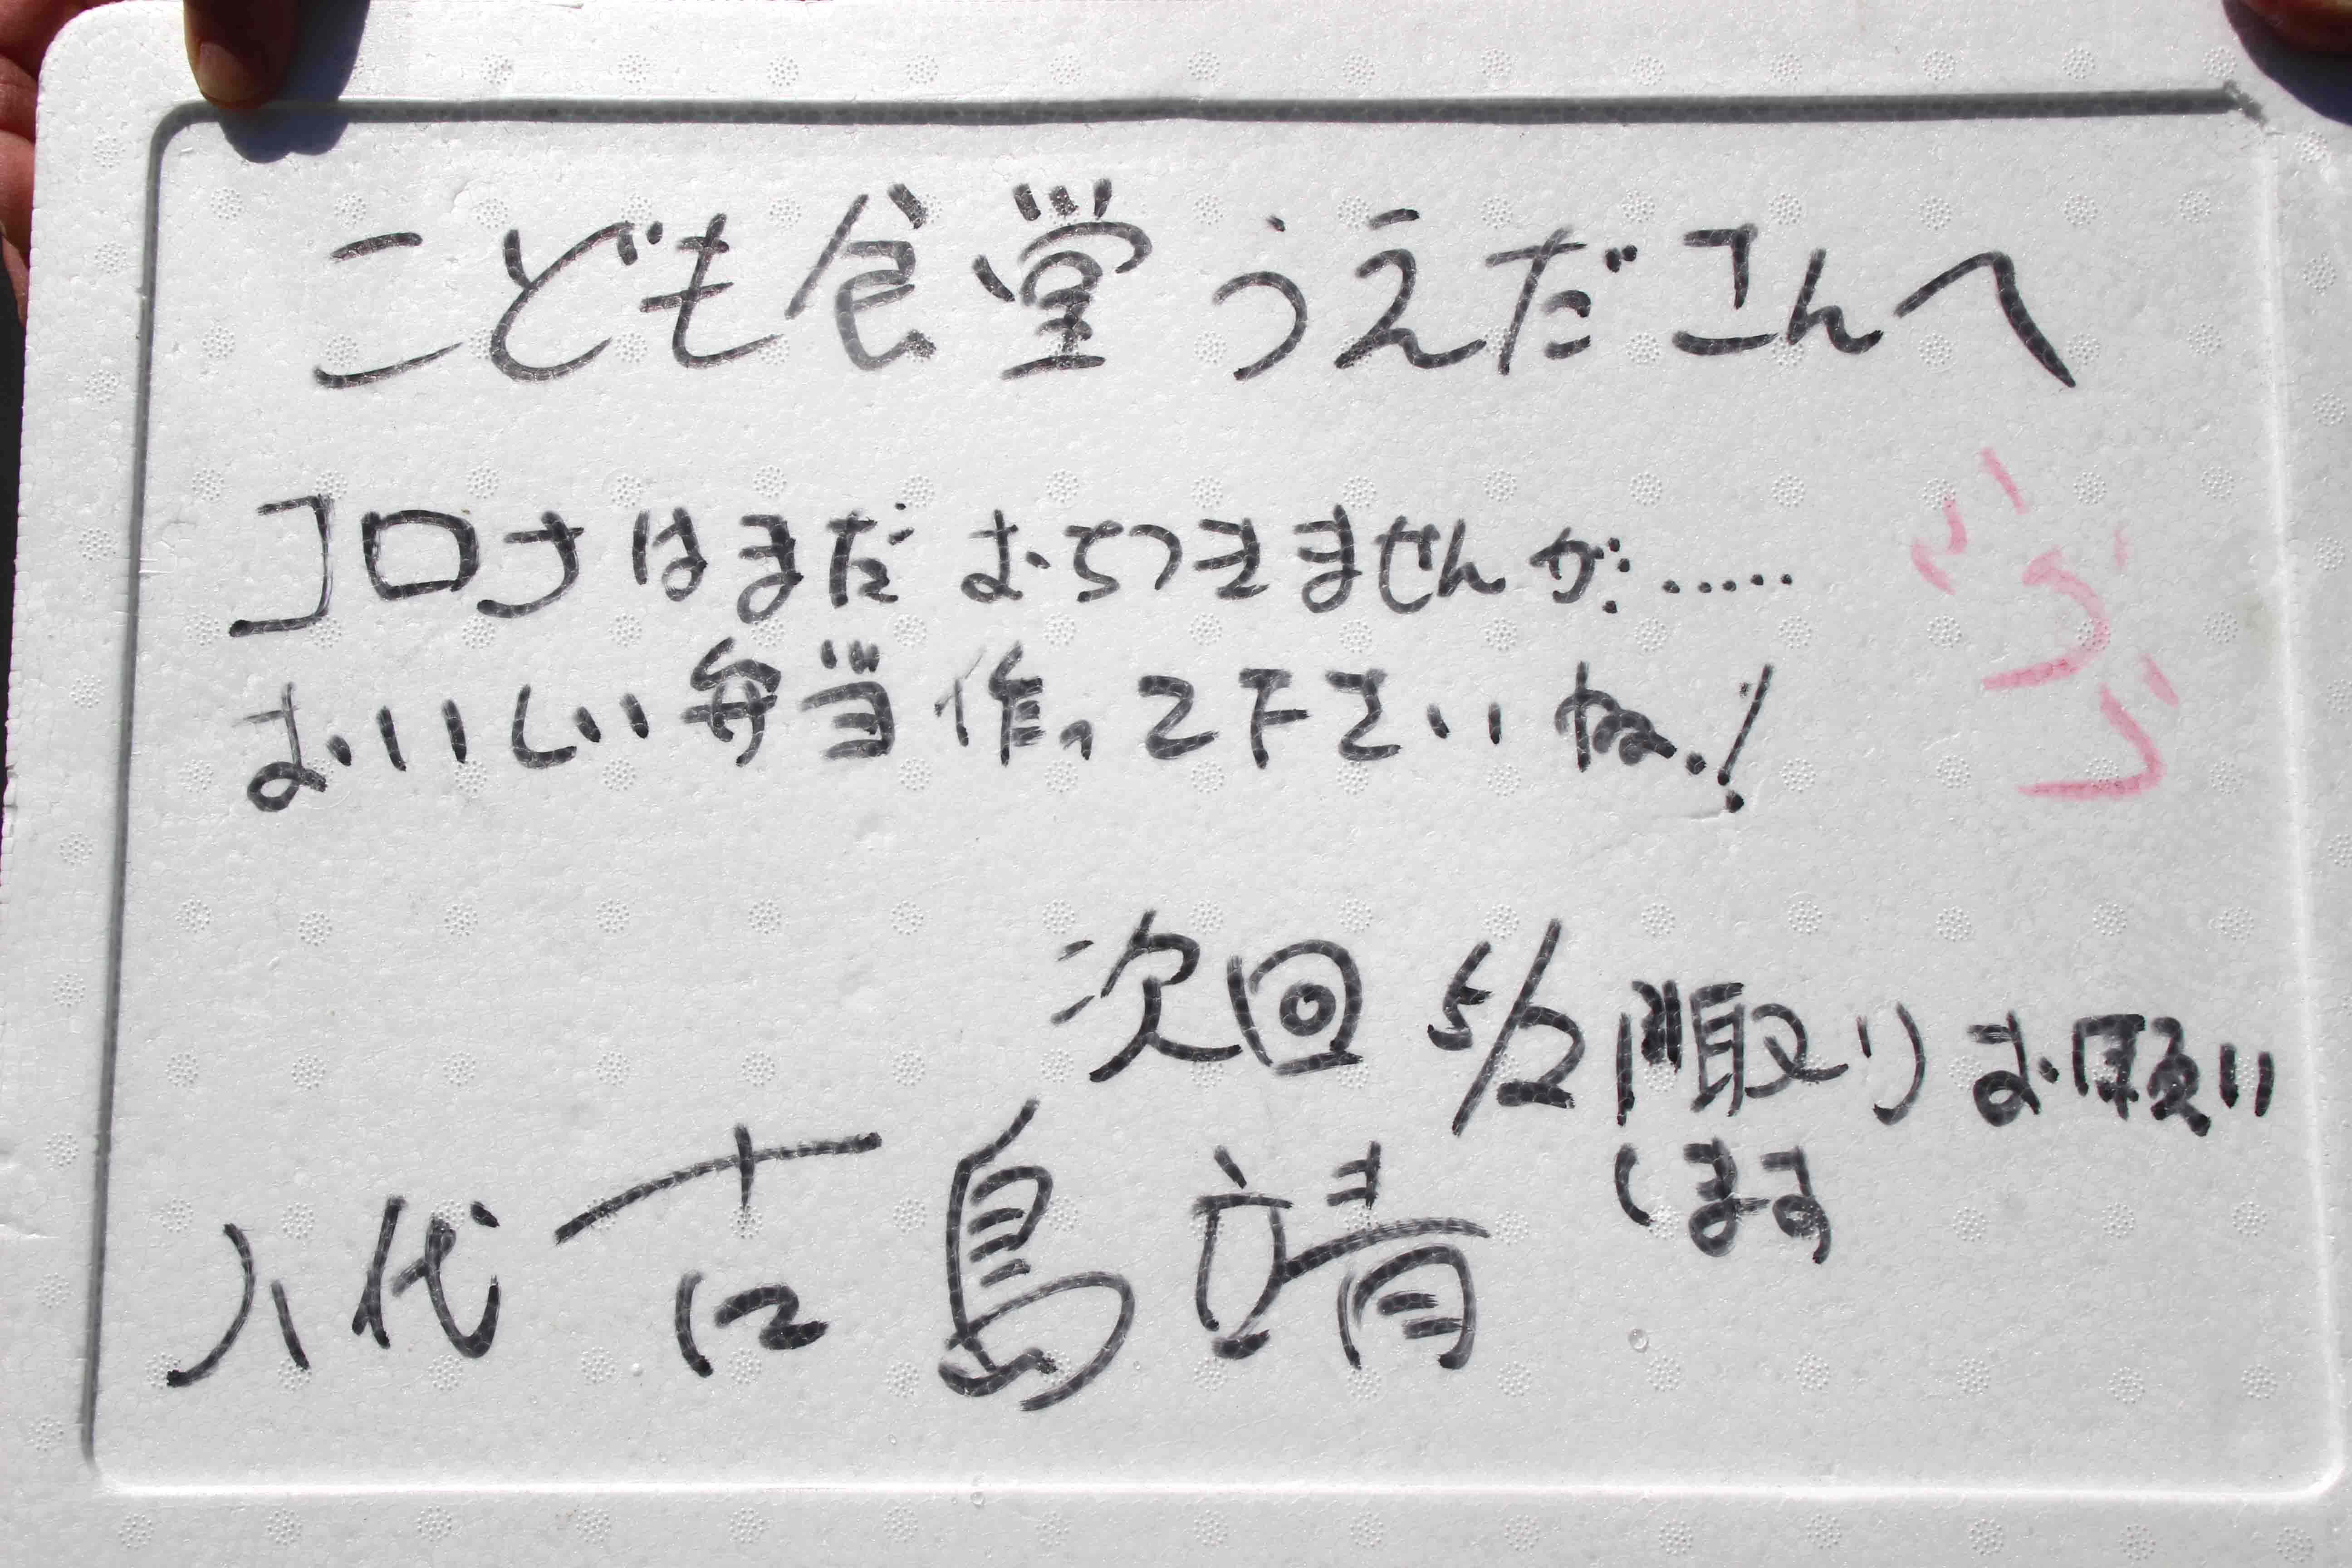 こども食堂うえださんへ
コロナはまだおちつきませんが……
おいしい弁当作って下さいね!
次回5/2 取りお願い
します
八代 古島 靖